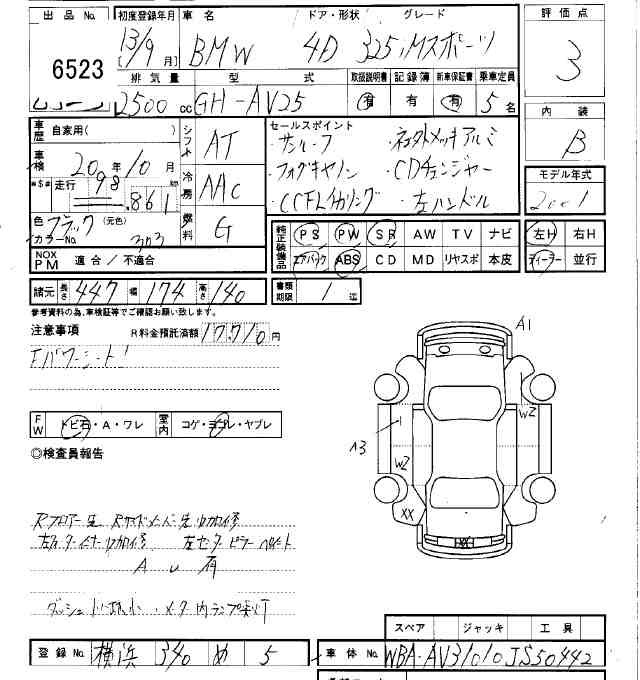 出品No. 初度登録年月 車名 ドア・形状 グレード 評価点
6523 13/9月 BMW 4D 325i Mスポーツ 3
排気量 型式 取扱説明書 記録簿 新車保証書 乗車定員
2500cc GH-AV25 有 有 有 5名 内装
車歴 自家用( ) シフト AT セールスポイント B
・サンルーフ ・社外メッキアルミ
車検 20年10月 冷房 AAC ・フォグキセノン ・CDチェンジャー モデル年式
走行 98,861km ・CCFLイカリング ・左ハンドル 2001
色 ブラック (元色) 燃料 G
カラーNo. 303 純正装備品 PS PW SR AW TV ナビ 左H 右H
NOX PM 適合/不適合 エアバック ABS CD MD リヤスポ 本皮 ディーラー 並行
諸元 長さ 447 幅 174 高さ 140 書類期限 1迄
参考資料の為、車検証等でご確認お願い致します。
注意事項 R料金預託済額 17,710円
Fパワーシート
A1
W2
A3
W2
FW トビ石・A・ワレ 室内 コゲ・ヨゴレ・ヤブレ
◎検査員報告
XX
XX
Rフロアー先 Rサイドメンバー先凹加修
左インナー凹加修 左センターピラー
A U 有
メータ内ランプ点灯
スペア ジャッキ 工具
登録No. 横浜 340 め 5 車体No. WBA-AV31010JS50442